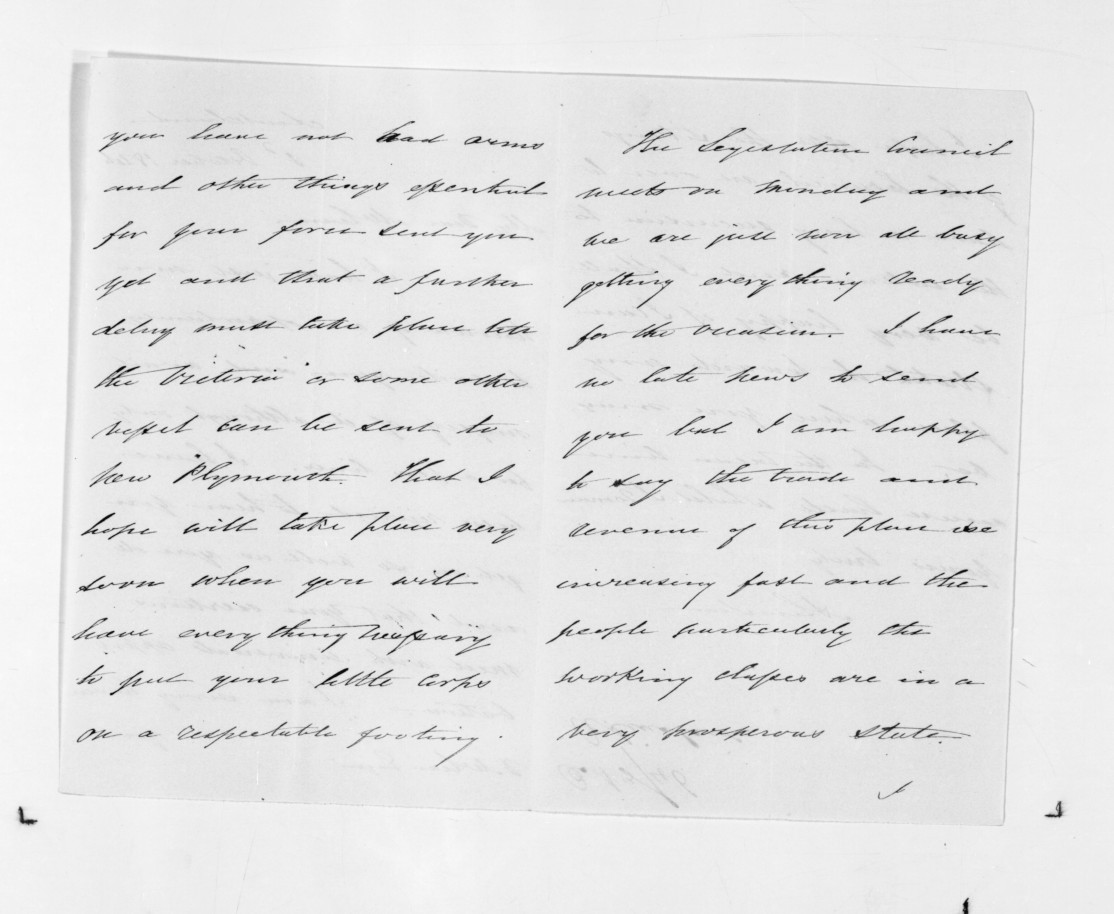 you have not had arms
and other things essential
for your force sent you
yet and that a further
delay must take place till
the "Victoria" or some other
vessel can be sent to
New Plymouth. That I
hope will take place very
soon when you will
have everything necessary
to put your little corps
on a respectable footing.
The Legislative Council
meets on Monday and
we are just now all busy
getting everything ready
for the occasion. I have
no late news to send
you but I am happy
to say the trade and
revenue of this place are
increasing fast and the
people particularly the
working classes are in a
very prosperous state.
I